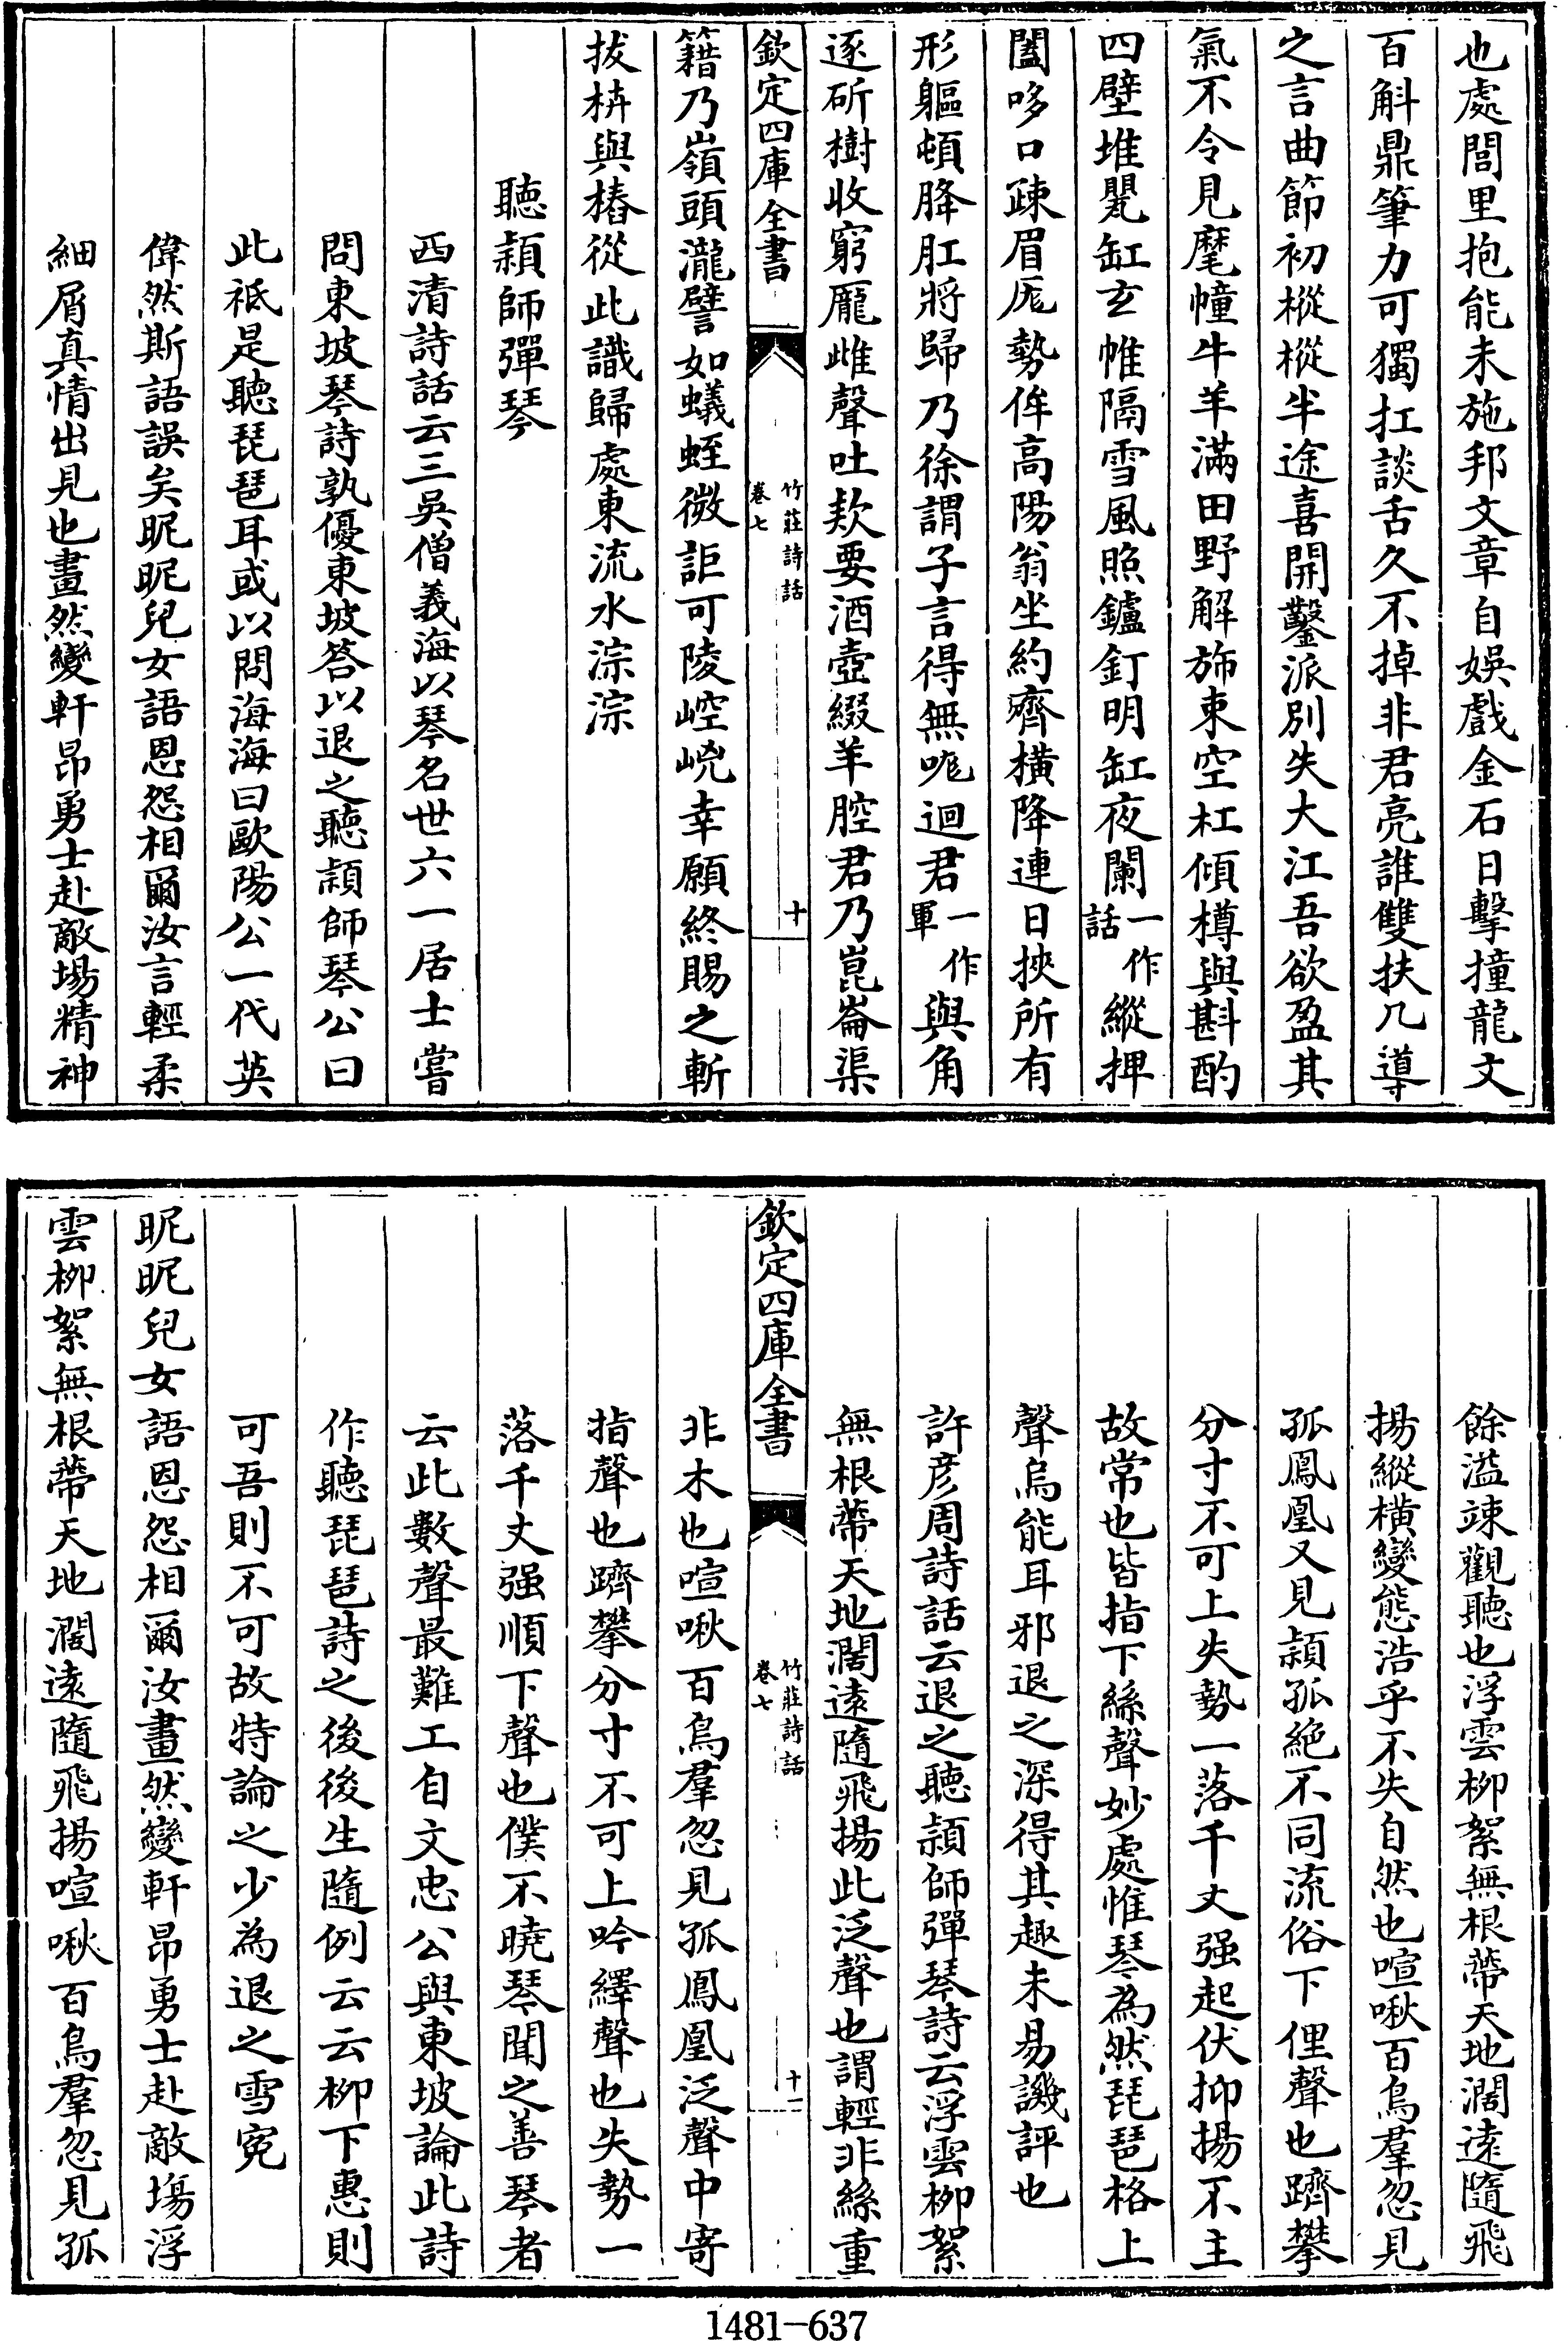 也處閭里抱能未施邦文章自娛戲金石日擊撞龍文
百斛鼎筆力可獨扛談舌久不掉非君亮誰雙扶几導
之言曲節初樅樅半途喜開鑿派別失大江吾欲盈其
氣不令見麾幢牛羊滿田野解斾束空杠傾樽與斟酌
四壁堆甖缸玄帷隔雪風照鑪釘明缸夜闌一作話縱捭
闔哆口疎眉厖勢侔高陽翁坐約齊橫降連日挾所有
形軀頓胮肛將歸乃徐謂子言得無哤迴君一作軍與角
逐斫樹收窮龐雌聲吐款要酒壺綴羊腔君乃崑崙渠
欽定四庫全書
竹莊詩話
卷七
十
籍乃嶺頭瀧譬如蟻蛭微詎可陵崆峣幸願終賜之斬
拔枿與樁從此識歸處東流水淙淙
聽潁師彈琴
西清詩話云三吳僧義海以琴名世六一居士嘗
問東坡琴詩孰優東坡答以退之聽潁師琴公曰
此祗是聽琵琶耳或以問海海曰歐陽公一代英
偉然斯語誤矣昵昵兒女語恩怨相爾汝言輕柔
細屑真情出見也畫然變軒昂勇士赴敵場精神
餘溢竦觀聽也浮雲柳絮無根蔕天地濶遠隨飛
揚縱橫變態浩乎不失自然也喧啾百鳥羣忽見
孤鳳凰又見潁孤絶不同流俗下俚聲也躋攀
分寸不可上失勢一落千丈强起伏抑揚不主
故常也皆指下絲聲妙處惟琴為然琵琶格上
聲烏能耳邪退之深得其趣未易譏評也
許彦周詩話云退之聽潁師彈琴詩云浮雲柳絮
無根蔕天地濶遠隨飛揚此泛聲也謂輕非絲重
欽定四庫全書
竹莊詩話
卷七
十一
非木也喧啾百鳥羣忽見孤鳳凰泛聲中寄
指聲也躋攀分寸不可上吟繹聲也失勢一
落千丈强順下聲也僕不曉琴聞之善琴者
云此數聲最難工自文忠公與東坡論此詩
作聽琵琶詩之後後生隨例云云柳下惠則
可吾則不可故特論之少為退之雪寃
昵昵兒女語恩怨相爾汝畫然變軒昂勇士赴敵塲浮
雲柳絮無根蔕天地濶遠隨飛揚喧啾百鳥羣忽見孤
1481-637